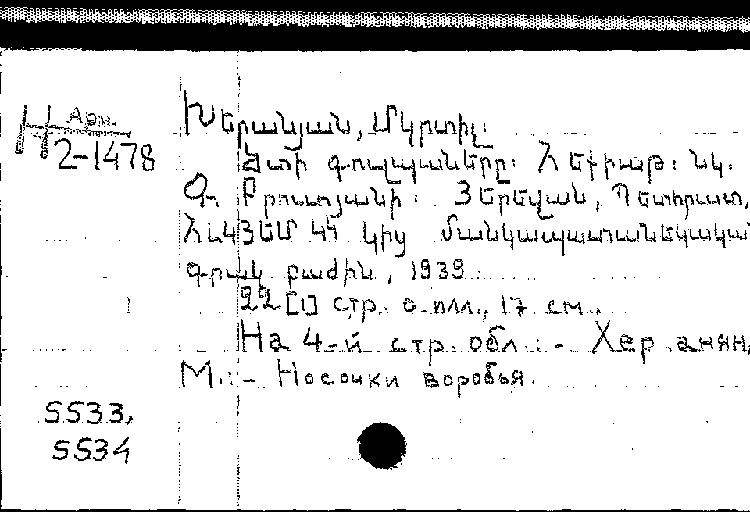 Арм.
H 2-1478
Խերանյան, Մկրտիչ
Ծտի գուլպաները: Հեքիաթ: Նկ.
Գ. Բրուտյանի: Յերեվան, Պետհրատ,
ՀԼԿՅԵՄ ԿԿ կից մանկապատանեկական
գրակ բաժին, 1939
22 [1] стр. с илл., 17 см.
На 4-й стр. обл.: - Херанян,
М.: - Носочки воробья.
5533,
5534